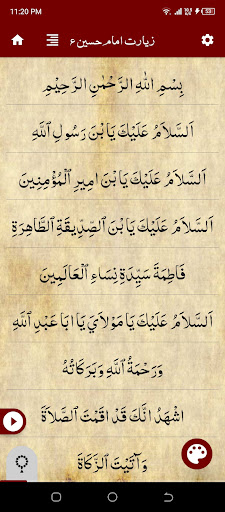 11:20 PM
زیارت امام حسین ع
بِسْمِ اللهِ الرَّحْمٰنِ الرَّحِيْمِ
اَلسَّلاَمُ عَلَيْكَ يَا بْنَ رَسُولِ ٱللَّهِ
اَلسَّلاَمُ عَلَيْكَ يَا بْنَ امِيرِ ٱلْمُؤْمِنِينَ
اَلسَّلاَمُ عَلَيْكَ يَا بْنَ ٱلصِّدِيقَةِ ٱلطَّاهِرَةِ
فَاطِمَةَ سَيِّدَةِ نِسَاءِ ٱلْعَالَمِينَ
اَلسَّلاَمُ عَلَيْكَ يَا مَوْلاَيَ يَا ابَا عَبْدِ ٱللَّهِ
وَرَحْمَةُ ٱللَّهِ وَبَرَكَاتُهُ
اشْهَدُ انَّكَ قَدْ اقَمْتَ ٱلصَّلاَةَ
وَآتَيْتَ ٱلزَّكَاةَ